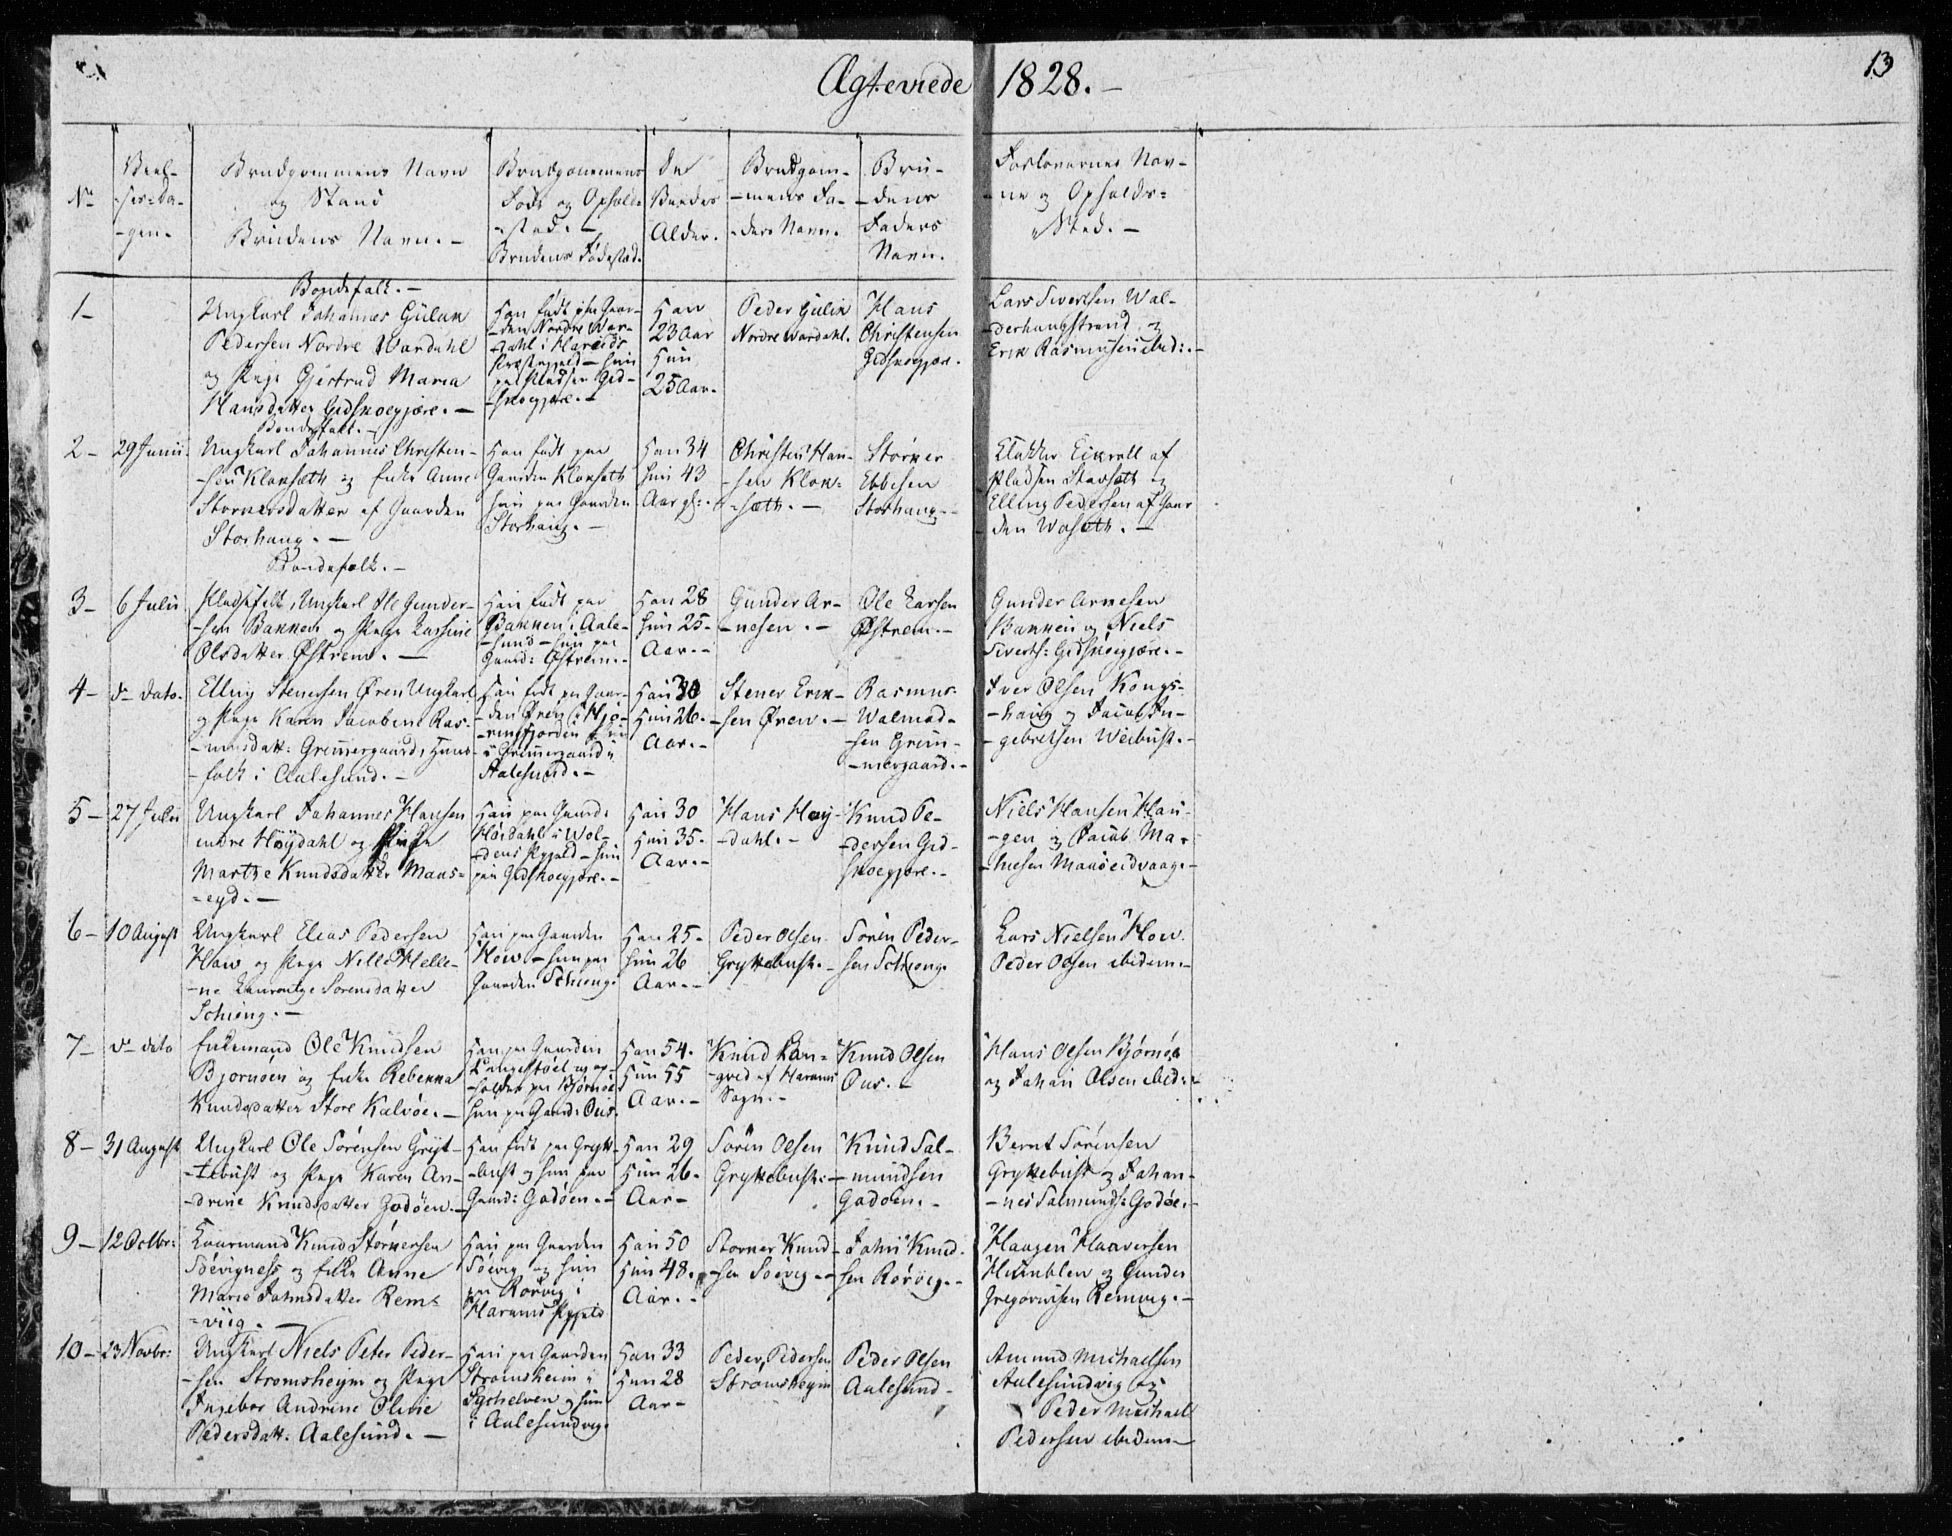 Ægteviede 1828.-
13
No
Viel-
-ses-Da-
-gen.
Brudgommens Navn
og Stand
Brudens Navn.-
Brudgommens
Føde og Opholds-
-sted.-
Brudens Fødested.
Alder.
Brudgom-
-mens Fa-
-ders Navn.
Bru-
-dens
Faders
Navn.
Forlovernes Nav-
-ne og Opholds-
Sted.-
1-
Bondefolk.-
Ungkarl Johannes Gulak
Pedersen Nordre Vardahl
og Pige Gjertrud Maria
Hansdatter Gidskoegjære.-
Han født paa Gaar-
-den Nordre Var-
-dahl i Hareids
Præstegjeld - hun
paa Pladsen Gid-
-skoegjære.-
Han
23 Aar
Hun
25 Aar.
Peder Gulik
Nordre Wardahl.
Hans
Christensen
Gidskoegjære.
Lars Sivertsen Wal-
-derhaugstrand og
Erik Rasmussen ibid:.-
2-
29 Junii
Bondefolk.-
Ungkarl Johannes Christen-
-sen Kloksæth og Enke Anne
Størkersdatter af Gaarden
Storhaug.-
Han født paa
Gaarden Kloksæth
hun paa Gaarden
Storhaug.-
Han 34
hun 43
Aar gl:.
Christen Han-
-sen Klok-
-sæth.-
Størker
Ebbesen
Storhaug.-
Eikrell af
Pladsen Stavsæth og
Elling Pedersen af Gaar
den Wasæth.-
3-
6 Julii
Bondefolk.-
Pladsfolk, Ungkarl Ole Gunder-
-sen Bakken og Pige Lassine
Olsdatter Østrem.-
Han født paa
Bakken i Aale-
-sund - hun paa
Gaard: Østrem.-
Han 28
hun 25-
Aar.-
Gunder Ar-
-nesen.-
Ole Larsen
Østrem.-
Gunder Arnesen
Bakken og Niels
Siverts: Gidskoegjære.-
4-
d- dato.
Elling Stenersen Øren Ungkarl
og Pige Karen Jacobine Ras-
-musdatt: Grimmergaard, Huus-
-folk i Aalesund.-
Han født paa Gaar-
-den Øren i Hjø-
-rensfjorden hun
i Grimmergaard i
Aalesund.-
Han 30
Hun 26.
Aar.-
Stener Erik-
-sen Øren.-
Rasmus
Walmod-
-sen Grim-
-mergaard.-
Iver Olsen Kongs-
-haug og Jacob In-
-gebretsen Weibust.-
5-
27 Julii
Ungkarl Johannes Hansen
indre Høydahl og Pige
Marthe Knudsdatter Maas-
-eyd.-
Han paa Gaard:
Høidahl i Vol-
-dens Pgjæld - hun
paa Gidskoegjære.-
Han 30
Hun 35-
Aar.-
Hans Høy-
-dahl.-
Knud Pe-
-dersen Gid-
skoegjære.-
Niels Hansen Hau-
-gen og Jacob Ma-
-thiesen Maaseidvaag.-
6-
10 August
Ungkarl Elias Pedersen
How og Pige Nille Helle-
-ne Laurentze Sørensdatter
Schiong.-
Han paa Gaarden
How - hun paa
Gaarden Schiong.
Han 25-
hun 26
Aar.-
Peder Olsen
Gryttebust.-
Søren Peder-
sen Schiong.
Lars Nielsen How.
Peder Olsen ibidem.-
7-
d- dato
Enkemand Ole Knudsen
Bjørnøen og Enke Rebekka
Knudsdatter Store Kalvøe.-
Han paa Gaarden
og op-
-holder paa Bjørnøe
hun paa Gaard: Ous.
Han 54.
Hun 55
Aar.-
Knud Lon-
-gved af Harams
Sogn.-
Knud Olsen
Ous.-
Hans Olsen Bjørnøe
og Johan Olsen ibid:-
8-
31 August
Ungkarl Ole Sørensen Gryt-
-tebust og Pige Karen An-
-drine Knudsdatter Godøen.-
Han født paa Grytt-
-bust og hun paa
Gaard: Godøen.-
Han 29
Hun 26.
Aar-
Søren Olsen
Gryttebust.-
Knud Sal-
-mundsen
Godøen.-
Bernt Sørensen
Gryttebust og Johan-
-nes Salmunds: Godøe.-
9-
12 Octbr:
Knud Størkersen
Søevigness og Enke Anne
Marie Johnsdatter Rem-
-viig.-
Han paa Gaarden
Søevig og hun
paa Rørvig i
Harams Pgjeld
Han 50
Hun 48.
Aar.-
Størker Knud-
-sen Søevig.-
John Knud-
sen Rørvig.-
Haagen Haaversen
Humblen og Gunder
Gregoriusen Remvig.-
10-
23 Novbr:
Ungkarl Niels Peter Peder-
-sen Strømsheym og Pige
Ingebor Andrine Oline
Pedersdatt: Aalesund.-
Han paa Gaarden
Strømsheim i
Syskelven og hun
i Aalesundvig.
Han 33
Hun 28
Aar-
Peder Pedersen
Strømsheym
Peder Olsen
Aalesund-
Amund Michaelsen
Aalesundvig og
Peder Michael
Pedersen ibidem-